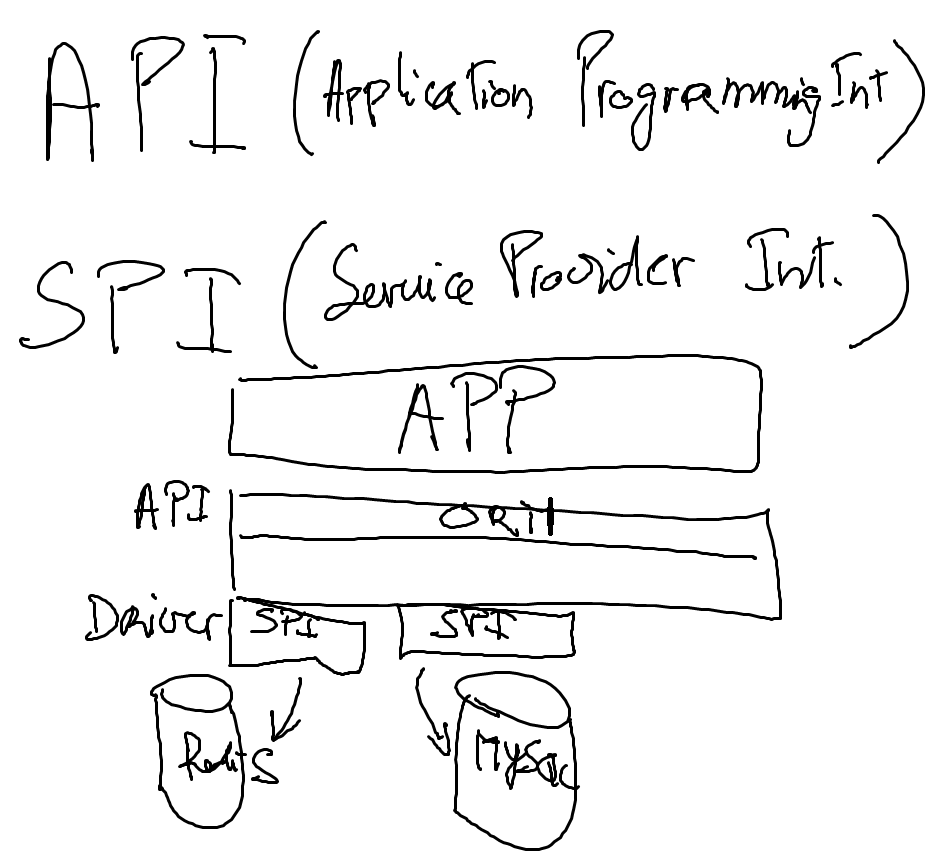 API (Application Programming Int)
SPI (Service Provider Int.)
APP
API ORM
Driver SPI SPI
Redis MySQL